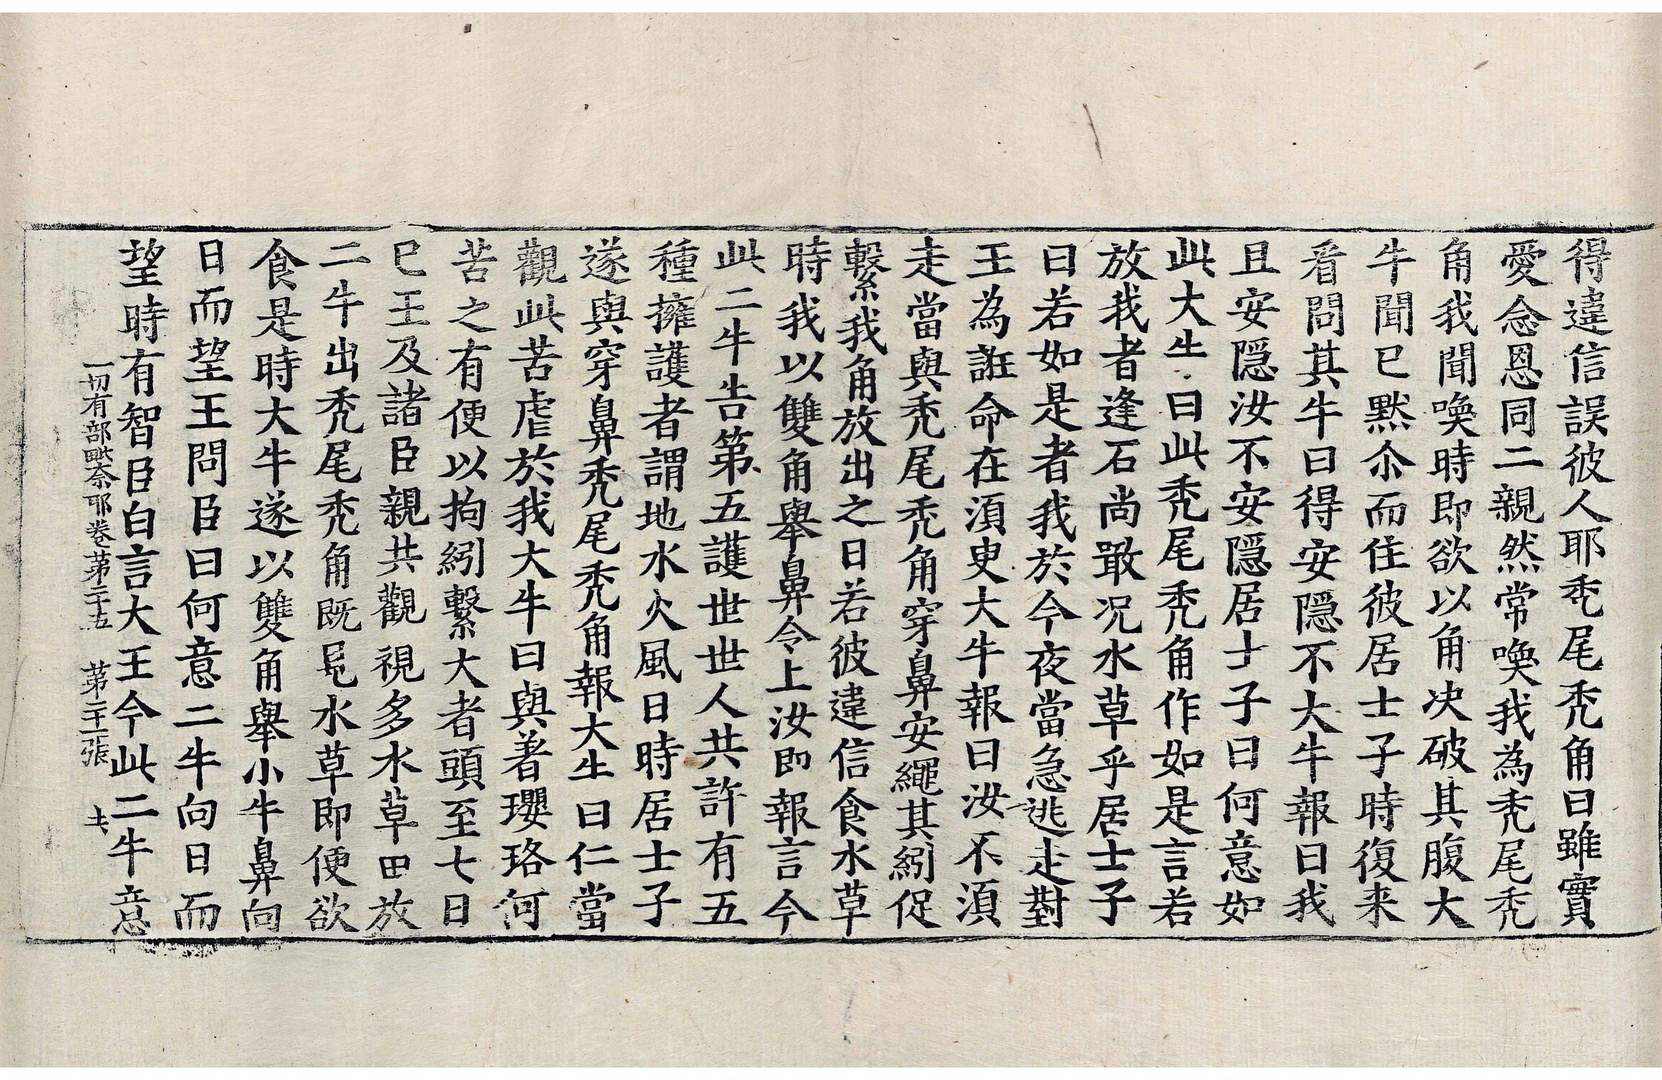 得違信誤彼人耶禿尾禿角曰雖實
愛念恩同二親然常喚我為禿尾禿
角我聞喚時即欲以角决破其腹大
牛聞已默尒而住彼居士子時復来
看問其牛曰得安隱不大牛報曰我
且安隱汝不安隱居士子曰何意如
此大生曰此禿尾禿角作如是言若
放我者逢石尚敢况水草乎居士子
曰若如是者我於今夜當急逃走對
王為誑命在湏臾大牛報曰汝不湏
走當與禿尾禿角穿鼻安繩其紖促
繫我角放出之日若彼違信食水草
時我以雙角舉鼻令上汝即報言今
此二牛告第五護世世人共許有五
種擁護者謂地水火風日時居士子
遂與穿鼻禿尾禿角報大生曰仁當
觀此苦虐於我大牛曰與著瓔珞何
苦之有便以拘紖繫大者頭至七日
已王及諸臣親共觀視多水草田放
二牛出禿尾禿角旣見水草即便欲
食是時大牛遂以雙角舉小牛鼻向
日而望王問臣曰何意二牛向日而
望時有智臣白言大王今此二牛意
一切有部毗奈耶卷第二十五 第二十二張 七